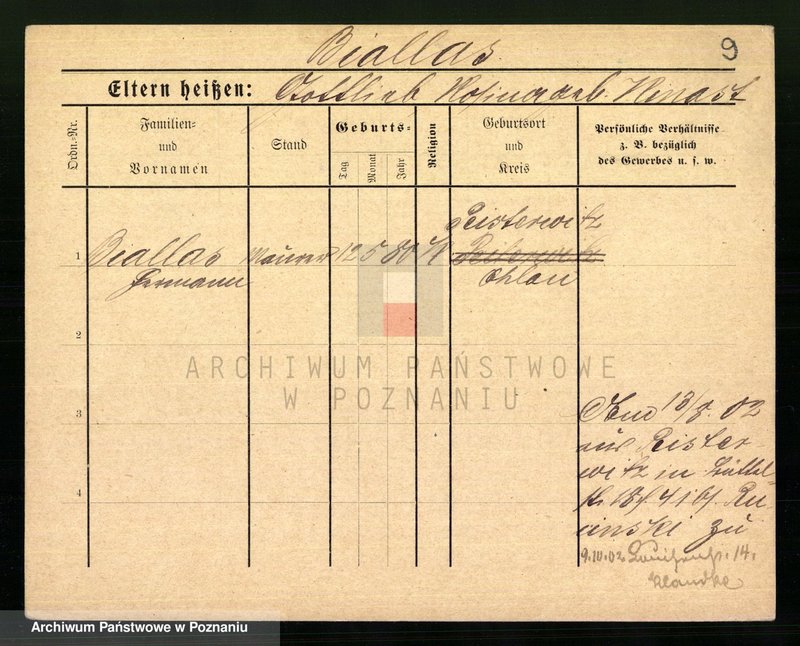 Biallas.
9
Eltern heißen: Gottlieb Rosina geb.
Ordn.-Nr.
Familien-
und
Vornamen
Stand
Geburts-
Tag
Monat
Jahr
Religion
Geburtsort
und
Kreis
Persönliche Verhältnisse
z. B. bezüglich
des Gewerbes u. s. w.
1
Biallas
Hermann
Maurer
12
5
80
Peisterwitz
Ohlau
2
3
4
13/8. 02
aus Peister-
witz in
zu
9.10.02 14.
ARCHIWUM PAŃSTWOWE
W POZNANIU
Archiwum Państwowe w Poznaniu